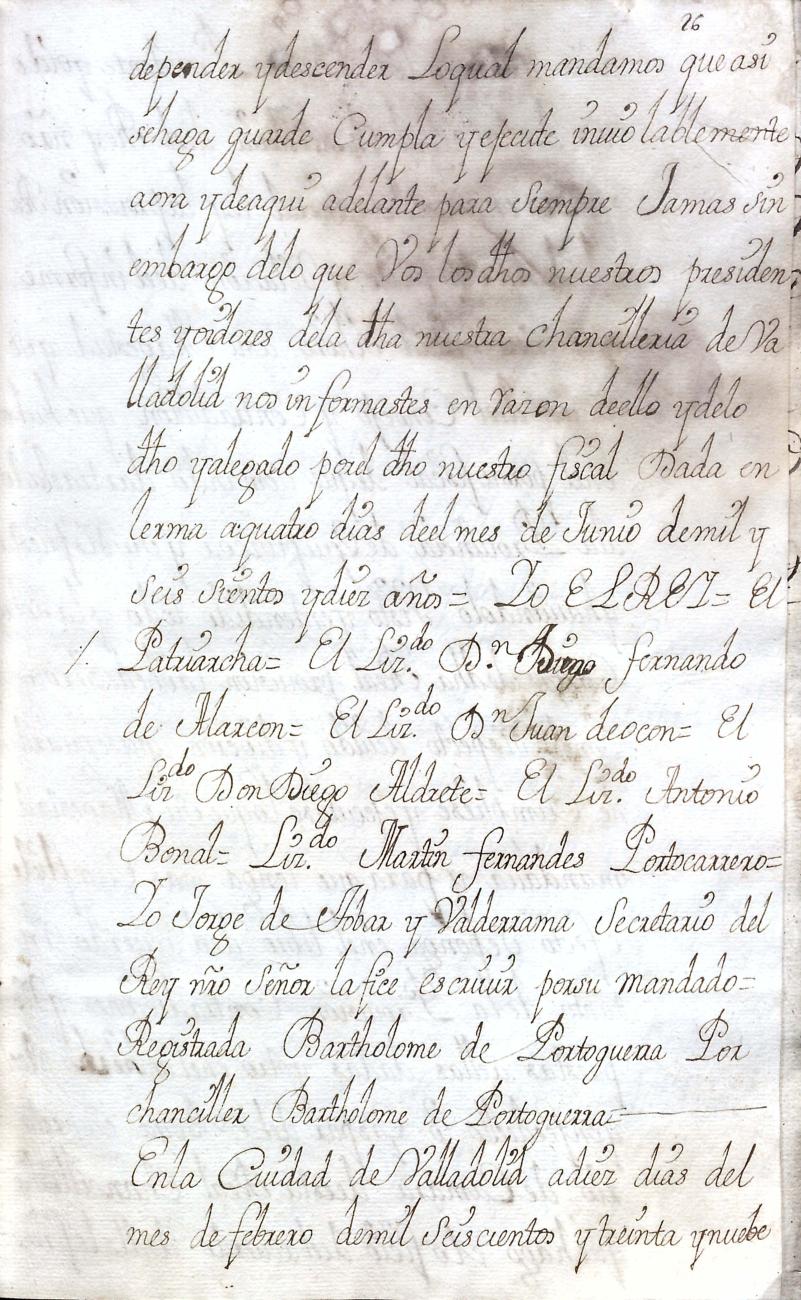 26
depender ydescender Loqual mandamos que asi
sehaga guarde Cumpla yejecute inviolablemente
aora ydeaqui adelante para Siempre Jamas sin
embargo delo que Vos los dhos nuestros presiden-
tes yoidores dela dha nuestra chancilleria de Va
lladolid nos informastes en razon deello ydelo
dho yalegado porel dho nuestro fiscal Dada en
lerma aquatro dias deel mes de Junio demil y
Seis Sientos ydiez años= Yo EL REY= El-
/. Patriarcha= El Liz.do D.n Diego fernando
de Alarcon= El Liz.do Dn Juan deocon= El
Lizdo Don Diego Aldrete= El Liz.do Antonio
Bonal= Liz.do Martin fernandes Portocarrero=
Yo Jorge de tobar y Valderrama Secretario del
Rey nro Señor lafice escrivir porsu mandado=
Registrada Bartholome de Portoguerra Por
chanciller Bartholome de Portoguerra=
Enla Ciudad de Valladolid adiez dias del
mes de febrero demil Seiscientos ytreinta ynuebe